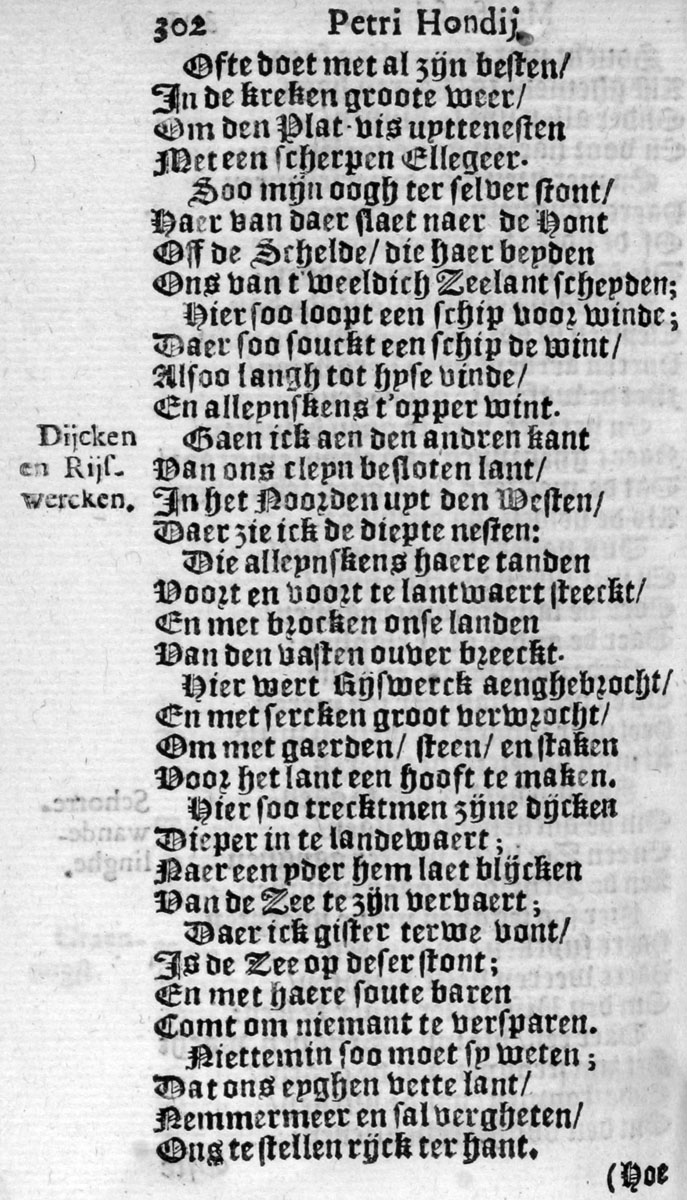 302 Petri Hondij,
Ofte doet met al zijn besten/
In de kreken groote weer/
Om den Plat-vis uyttenesten
Met een scherpen Ellegeer.
Soo mijn oogh ter selver stont/
Haer van daer slaet naer de Hont
Off de Schelde/ die haer beyden
Ons van t'weeldich Zeelant scheyden;
Hier soo loopt een schip voor winde;
Daer soo souckt een schip de wint/
Alsoo langh tot hyse vinde/
En alleynskens t'opper wint.
Dijcken
en Rijs-
wercken.
Gaen ick aen den andren kant
Van ons cleyn besloten lant/
In het Noorden uyt den Westen/
Daer zie ick de diepte nesten:
Die alleynskens haere tanden
Voort en voort te lantwaert steeckt/
En met brocken onse landen
Van den vasten ouver breeckt.
Hier wert Rijswerck aenghebrocht/
En met sercken groot verwrocht/
Om met gaerden/ steen/ en staken
Voor het lant een hooft te maken.
Hier soo trecktmen zijne dijcken
Dieper in te landewaert;
Naer een yder hem laet blijcken
Van de Zee te zijn vervaert;
Daer ick gister terwe vont/
Is de Zee op deser stont;
En met haere soute baren
Comt om niemant te versparen.
Niettemin soo moet sy weten;
Dat ons eyghen vette lant/
Nemmermeer en sal vergheten/
Ons te stellen rijck ter hant.
(Hoe